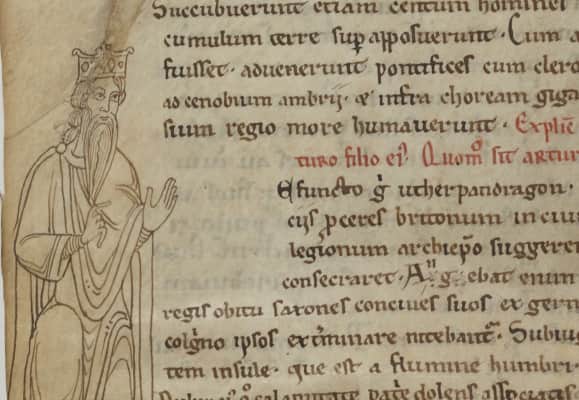 Succubuerunt etiam centum homines
cumulum terre sup apposuerunt. Cum a
fuisset. advenerunt pontifices cum clero
ad cenobium ambrii. & infra choream giga
tum regio more humaverunt. Explic
turo filio ei. Quom sit artur
Efuncto g utherpandragon.
cis pceres britonum in ciui
legionum archiepo suggerer
consecraret. Ag ebat enim
regis obitu saxones concives suos ex germ
colgrno ipsos exterminare nitebant. Subiu
tem insule. que est a flumine humbri
calamitate patrie dolens associatis